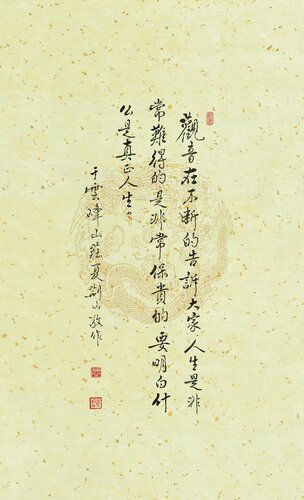 觀音在不断的告訴大家人生是非
常難得的是非常保貴的要明白什
么是真正人生。
于雲峰山莊夏荆山敬作